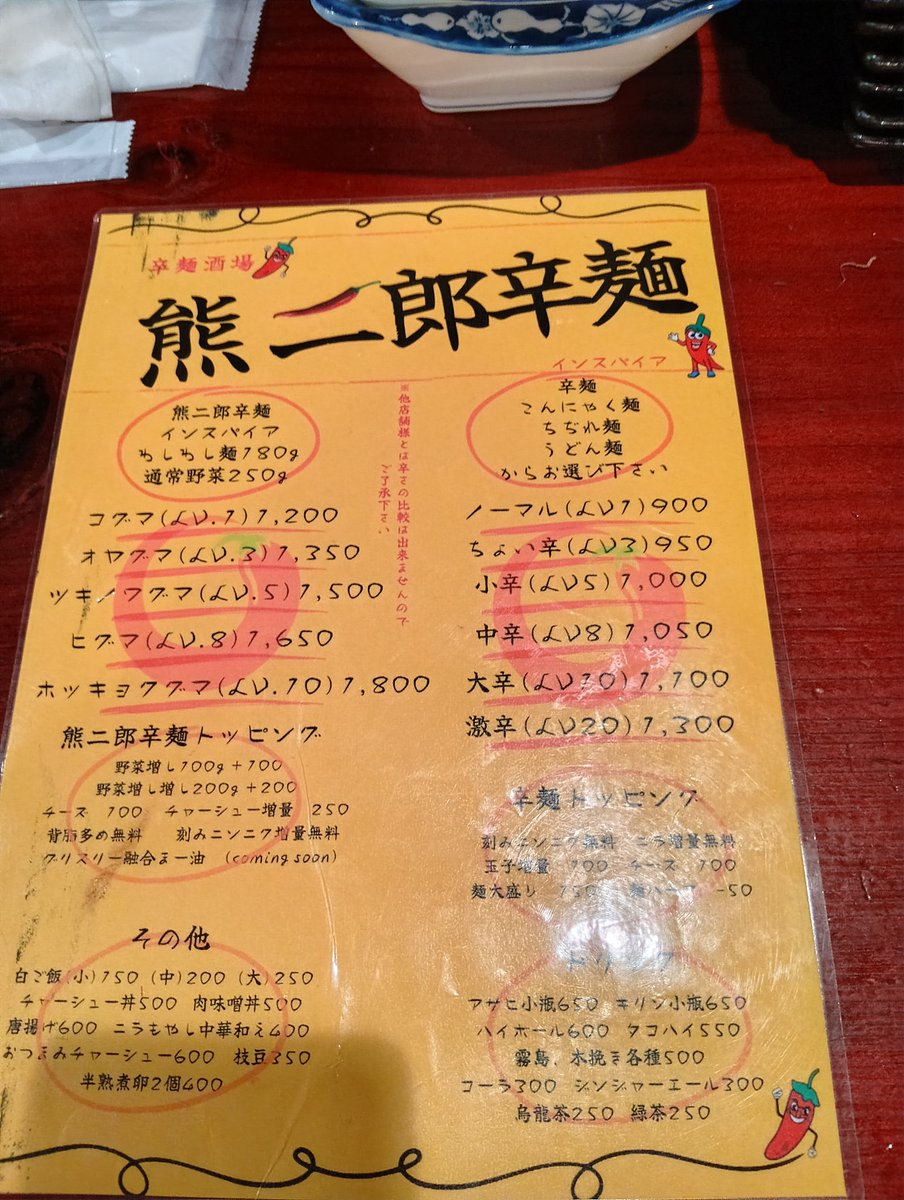 辛麺酒場
熊二郎辛麺
インスパイア
熊二郎辛麺
インスパイア
わしわし麺180g
通常野菜250g
コグマ(LV.1)1,200
オヤグマ(LV.3)1,350
ツキノワグマ(LV.5)1,500
ヒグマ(LV.8)1,650
ホッキョクグマ(LV.10)1,800
※他店舗様とは辛さの比較は出来ませんので
ご了承下さい
辛麺
こんにゃく麺
ちぢれ麺
うどん麺
からお選び下さい
ノーマル(LV1)900
ちょい辛(LV3)950
小辛(LV5)1,000
中辛(LV8)1,050
大辛(LV10)1,100
激辛(LV20)1,300
熊二郎辛麺トッピング
野菜増し100g+100
野菜増し増し200g+200
チーズ 100 チャーシュー増量 250
背脂多め無料 刻みニンニク増量無料
グリスリー融合まー油 (coming soon)
辛麺トッピング
刻みニンニク無料 ニラ増量無料
玉子増量 100 チーズ 100
麺大盛り 150 麺ハーフ -50
その他
白ご飯(小)150 (中)200 (大)250
チャーシュー丼500 肉味噌丼500
唐揚げ600 ニラもやし中華和え400
おつまみチャーシュー600 枝豆350
半熟煮卵2個400
ドリンク
アサヒ小瓶650 キリン小瓶650
ハイボール600 タコハイ550
霧島、木挽き各種500
コーラ300 ジンジャーエール300
烏龍茶250 緑茶250